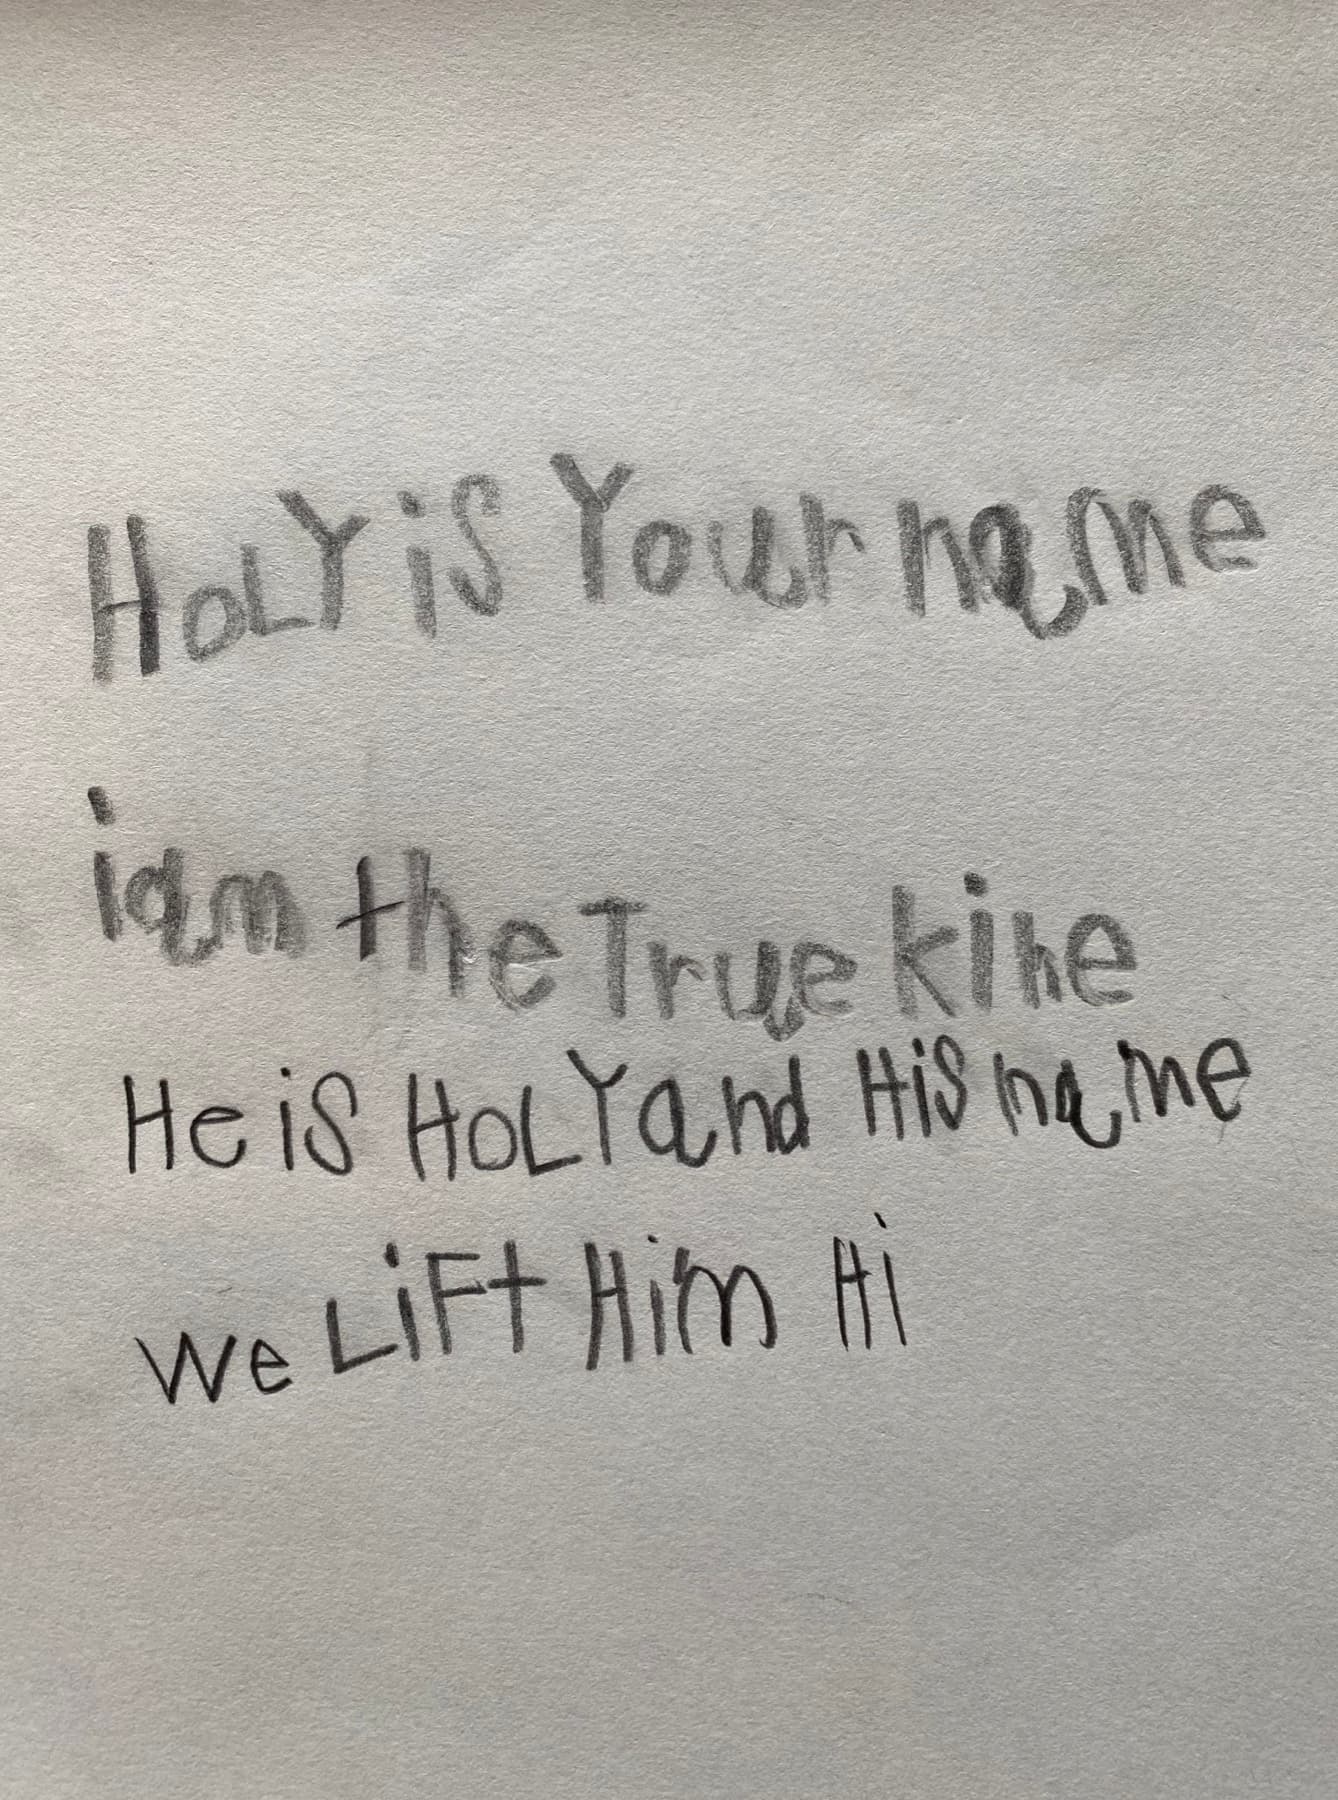 HOLY is Your name
iam the True kine
He is HOLY and His name
we LiFt Him Hi